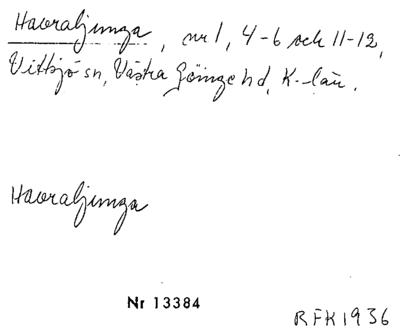 Havraljunga, nr 1, 4-6 och 11-12,
Vittsjö sn, Västra Göinge hd, K-län.
Havraljunga
Nr 13384
RFK 1936